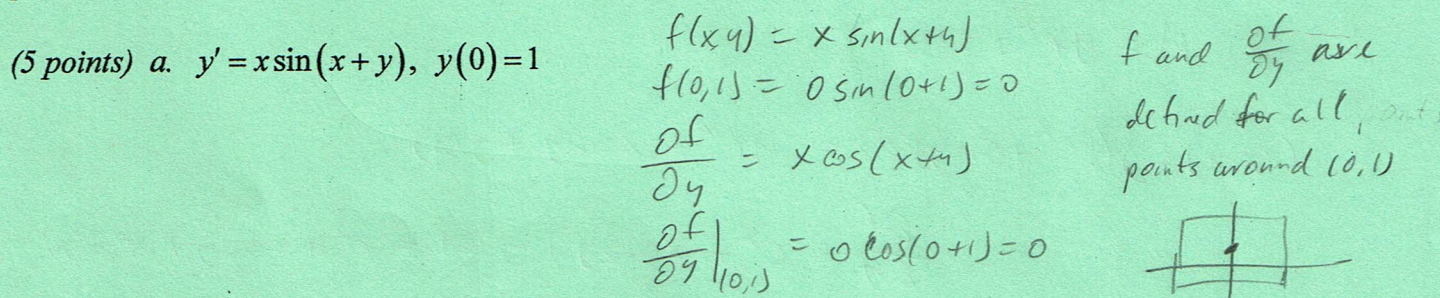 (5 points) a. y' = x sin(x + y), y(0) = 1
f(x,y) = x sin(x+y)
f(0,1) = 0 sin(0+1) = 0
∂f/∂y = x cos(x+y)
∂f/∂y |(0,1) = 0 cos(0+1) = 0
f and ∂f/∂y are
defined for all
points around (0,1)